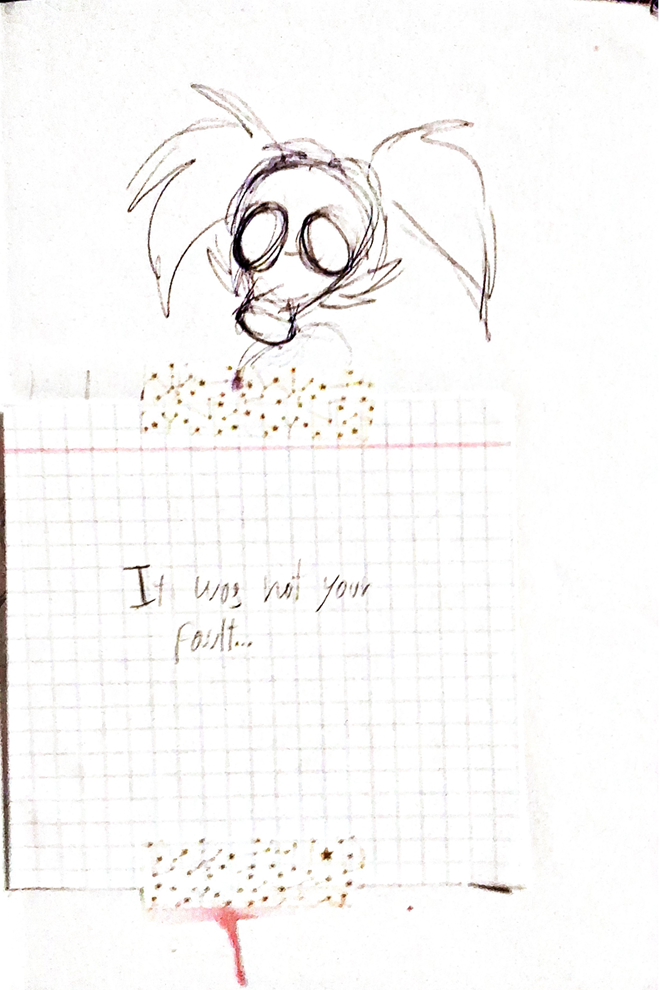 It was not your
fault...